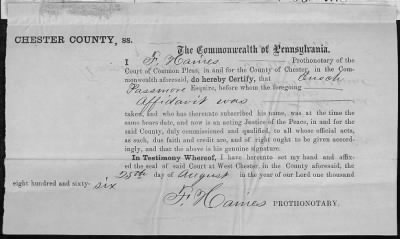 CHESTER COUNTY, ss.
The Commonwealth of Pennsylvania.
I F. Haines Prothonotary of the
Court of Common Pleas, in and for the County of Chester, in the Com-
monwealth aforesaid, do hereby Certify, that Enoch
Passmore Esquire, before whom the foregoing
Affidavit was
taken, and who has thereunto subscribed his name, was at the time
same bears date, and now is an acting Justice of the Peace, in and for the
said County, duly commissioned and qualified, to all whose official acts,
as such, due faith and credit are, and of right ought to be given accord-
ingly, and that the above is his genuine signature.
In Testimony Whereof, I have hereunto set my hand and affix-
ed the seal of said Court at West Chester, in the County aforesaid, the
25th day of August in the year of our Lord one thousand
eight hundred and sixty-six
F. Haines PROTHONOTARY.